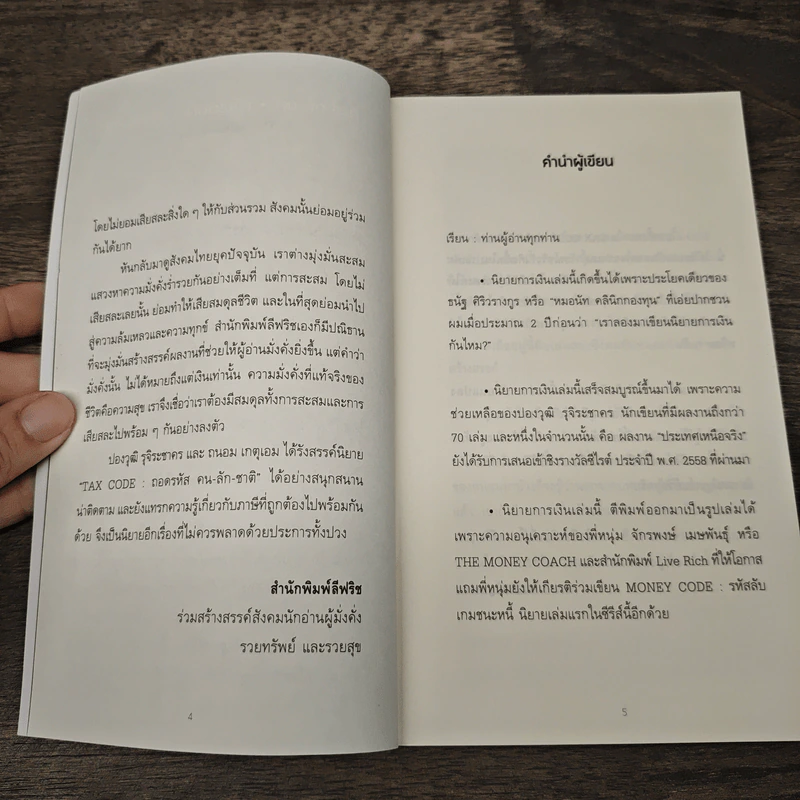 โดยไม่ยอมเสียสละสิ่งใด ๆ ให้กับส่วนรวม สังคมนั้นย่อมอยู่ร่วม
กันได้ยาก
หันกลับมาดูสังคมไทยยุคปัจจุบัน เราต่างมุ่งมั่นสะสม
แสวงหาความมั่งคั่งร่ำรวยกันอย่างเต็มที่ แต่การสะสม โดยไม่
เสียสละเลยนั้น ย่อมทำให้เสียสมดุลชีวิต และในที่สุดย่อมนำไป
สู่ความล้มเหลวและความทุกข์ สำนักพิมพ์ลีฟริชเองก็มีปณิธาน
ที่จะมุ่งมั่นสร้างสรรค์ผลงานที่ช่วยให้ผู้อ่านมั่งคั่งยิ่งขึ้น แต่คำว่า
มั่งคั่งนั้น ไม่ได้หมายถึงแต่เงินเท่านั้น ความมั่งคั่งที่แท้จริงของ
ชีวิตคือความสุข เราจึงเชื่อว่าเราต้องมีสมดุลทั้งการสะสมและการ
เสียสละไปพร้อม ๆ กันอย่างลงตัว
ปองวุฒิ รุจิระชาคร และ ถนอม เกตุเอม ได้รังสรรค์นิยาย
“TAX CODE : ถอดรหัส คน-ลัก-ชาติ” ได้อย่างสนุกสนาน
น่าติดตาม และยังแทรกความรู้เกี่ยวกับภาษีที่ถูกต้องไปพร้อมกัน
ด้วย จึงเป็นนิยายอีกเรื่องที่ไม่ควรพลาดด้วยประการทั้งปวง
สำนักพิมพ์ลีฟริช
ร่วมสร้างสรรค์สังคมนักอ่านผู้มั่งคั่ง
รวยทรัพย์ และรวยสุข
4
คำนำผู้เขียน
เรียน : ท่านผู้อ่านทุกท่าน
• นิยายการเงินเล่มนี้เกิดขึ้นได้เพราะประโยคเดียวของ
ธนัฐ ศิริวรางกูร หรือ “หมอนัท คลินิกกองทุน” ที่เอ่ยปากชวน
ผมเมื่อประมาณ 2 ปีก่อนว่า “เราลองมาเขียนนิยายการเงิน
กันไหม?”
• นิยายการเงินเล่มนี้เสร็จสมบูรณ์ขึ้นมาได้ เพราะความ
ช่วยเหลือของปองวุฒิ รุจิระชาคร นักเขียนที่มีผลงานถึงกว่า
70 เล่ม และหนึ่งในจำนวนนั้น คือ ผลงาน “ประเทศเหนือจริง”
ยังได้รับการเสนอเข้าชิงรางวัลซีไรต์ ประจำปี พ.ศ. 2558 ที่ผ่านมา
• นิยายการเงินเล่มนี้ ตีพิมพ์ออกมาเป็นรูปเล่มได้
เพราะความอนุเคราะห์ของพี่หนุ่ม จักรพงษ์ เมษพันธุ์ หรือ
THE MONEY COACH และสำนักพิมพ์ Live Rich ที่ให้โอกาส
แถมพี่หนุ่มยังให้เกียรติร่วมเขียน MONEY CODE : รหัสลับ
เกมชนะหนี้ นิยายเล่มแรกในซีรีส์นี้อีกด้วย
5